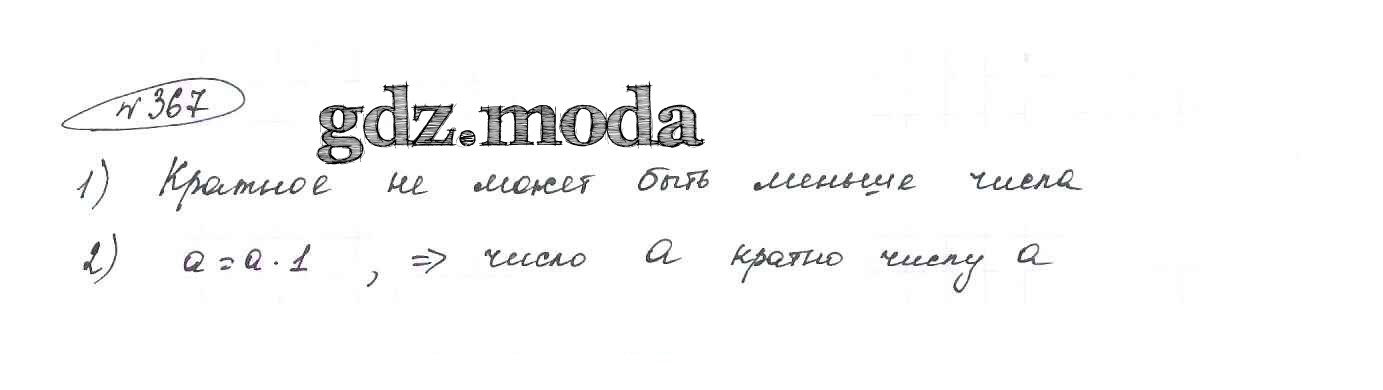 № 367
gdz.moda
1) Кратное не может быть меньше числа
2) a = a · 1 , => число a кратно числу a